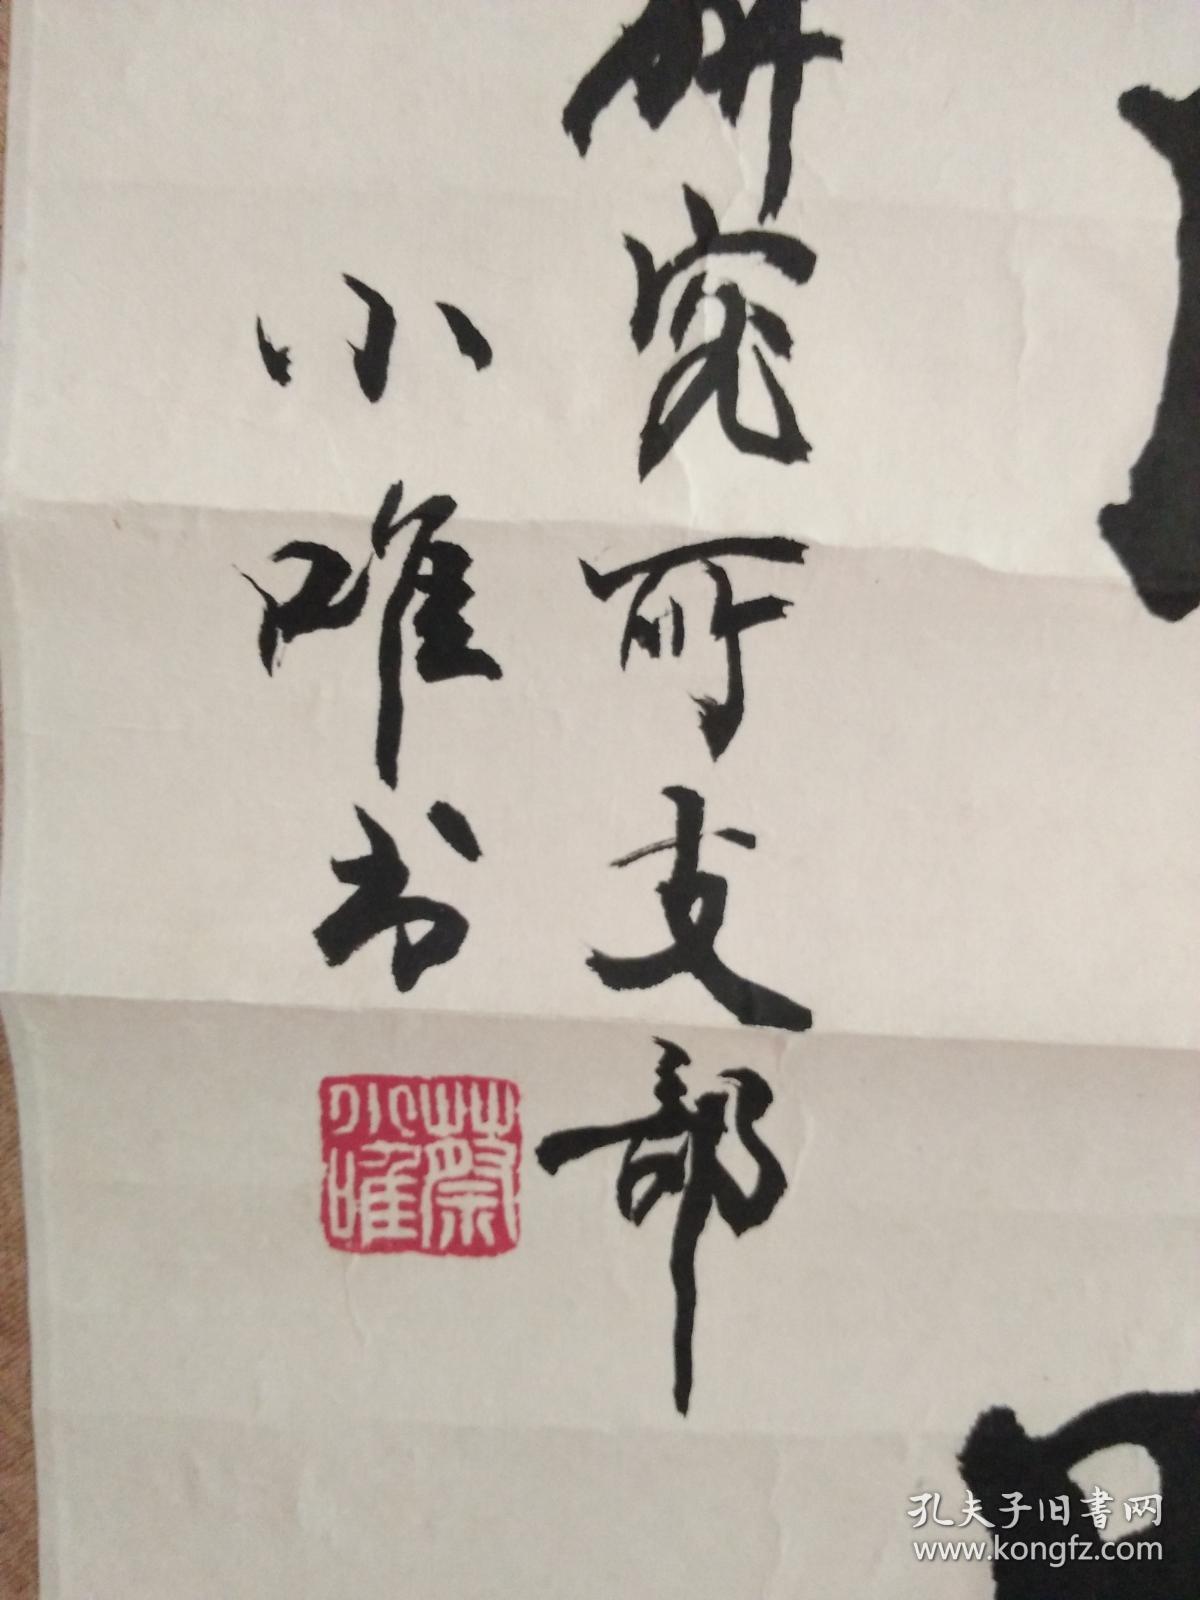 研究所支部
小唯书
蔡
小唯
孔夫子旧書网
www.kongfz.com